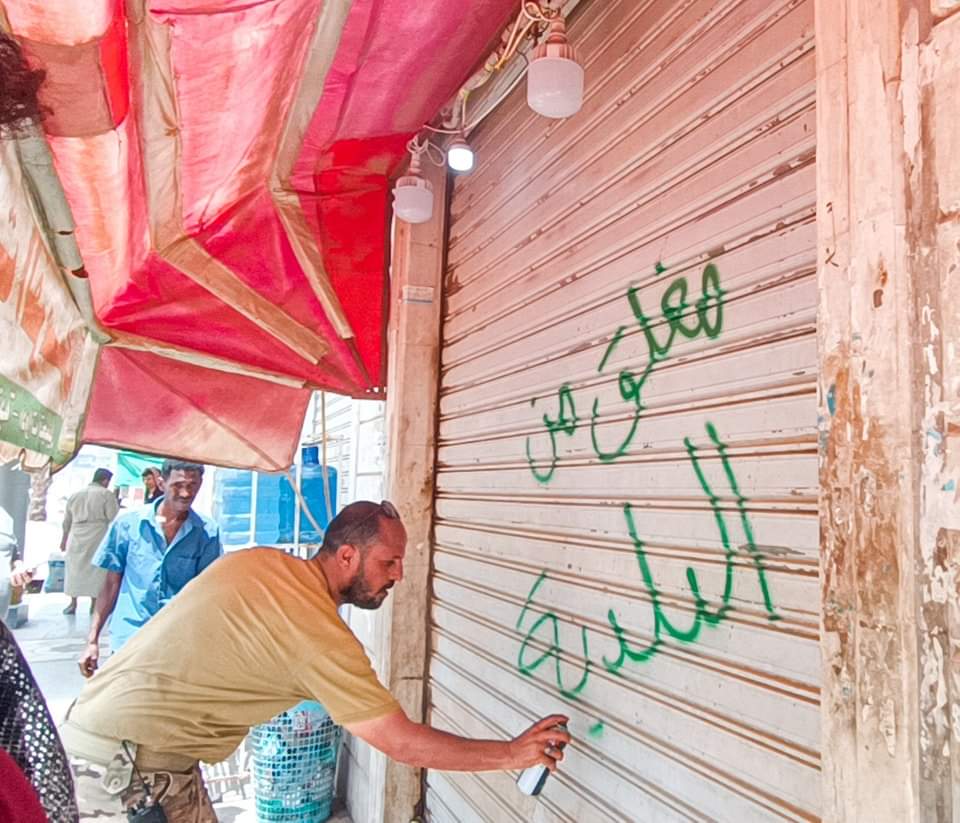 مغلق من
البلدية